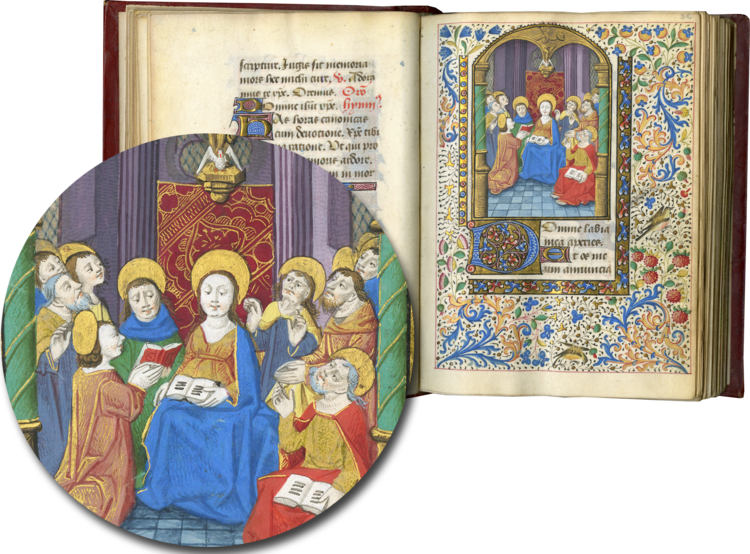 scriptur. Jugis sit memoria
mors hec michi tue, ℣. Adora
mus te xpe. Oremus. Oro
Domine ihu xpe. hymn?
As horas canonicas
cum devotione. Xpe tibi
ratione. Ut qui pro
amoris ardore.
in mor
Domine labia
mea aperies.
Et os me
um annuncia